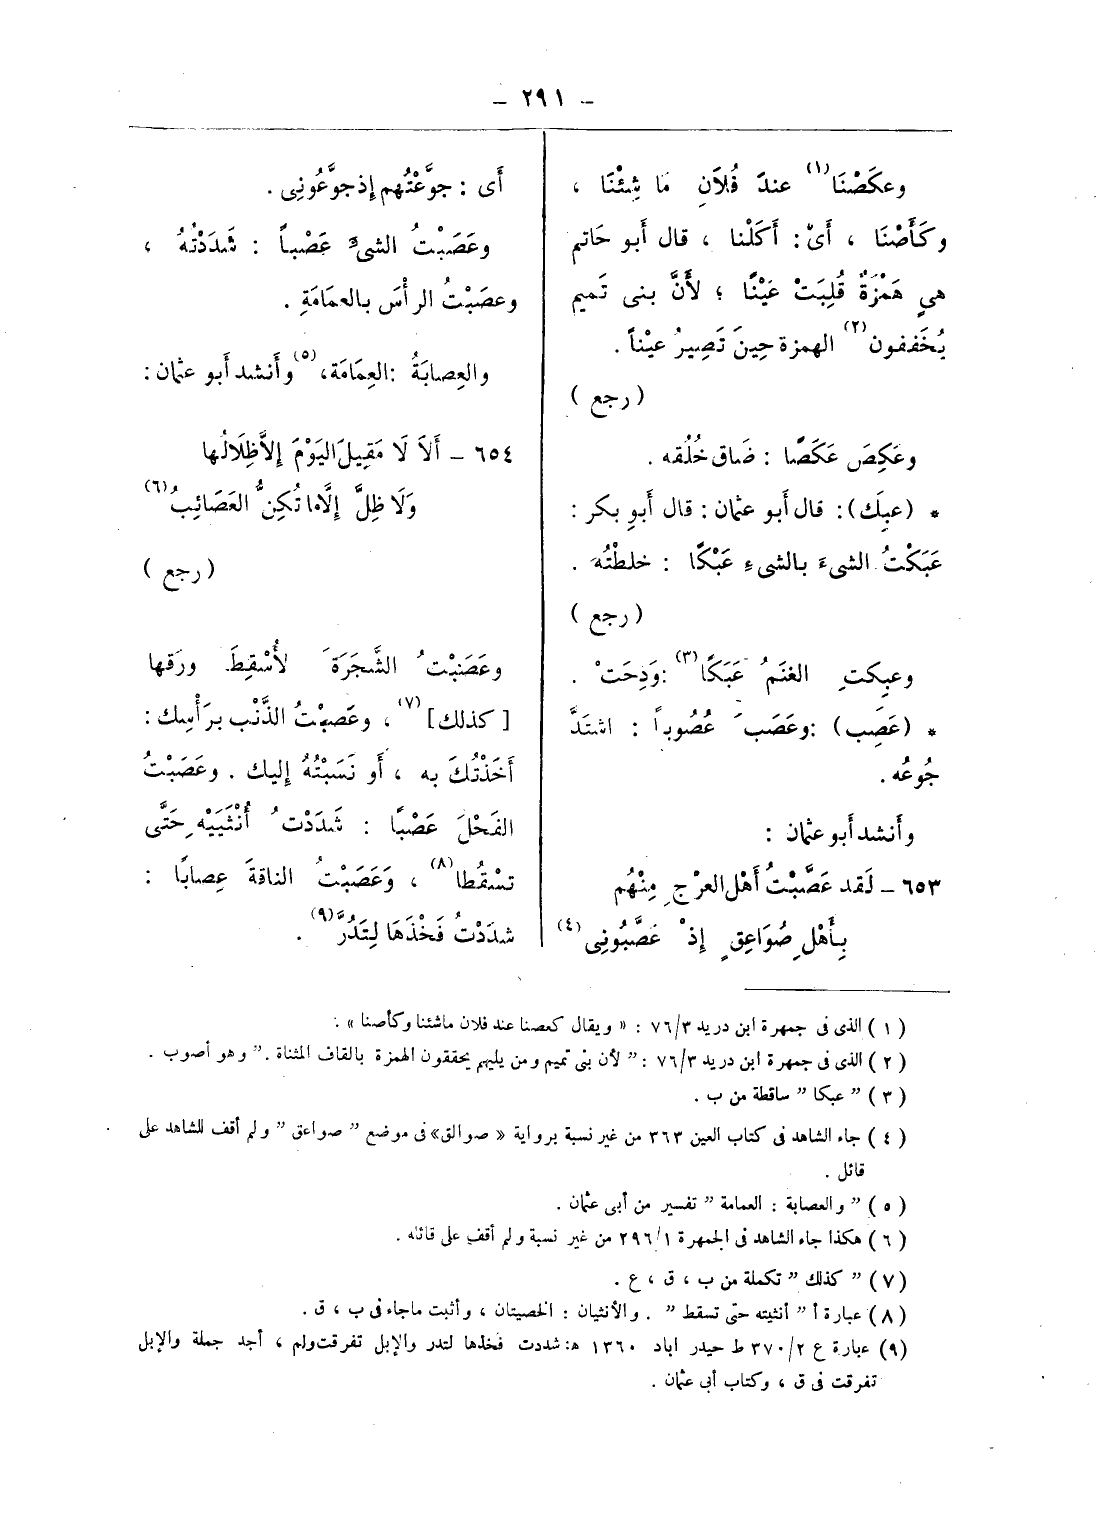 - ٢٩١ -
وعكَصْنَا(١) عندَ فُلَانٍ مَا شِئْنَا ،
وكَأَصْنَا ، أَىْ : أَكَلْنا ، قال أَبو حَاتم
هي هَمْزَةٌ قُلِبَتْ عَيْنًا ؛ لأَنَّ بنى تَميم
يُخَففون(٢) الهمزة حِينَ تَصِيرُ عيْناً .
( رجع )
وعَكِصَ عَكَصًا : ضَاق خُلُقه .
* (عبِك) : قال أَبو عثمان : قال أَبو بكر :
عَبَكْتُ الشىءَ بالشىءِ عَبْكًا : خلطْتُه .
( رجع )
وعبِكتِ الغنَمُ عَبَكًا(٣) : وَذِحَتْ .
* (عَصِب) : وعَصَب عُصُوباً : اشتَدَّ
جُوعُه .
وأَنشد أَبو عثمان :
٦٥٣ - لَقد عَصَّبْتُ أَهْل العرْجِ مِنْهُم
بِأَهْلِ صُوَاعِقٍ إِذْ عَصَّبُونِى(٤)
أَى : جوَّعْتُهم إِذ جوَّعُونِى .
وعَصَبْتُ الشىءَ عَصْباً : شَدَدْتُهُ ،
وعصَبْتُ الرأْسَ بالعمَامَةِ .
والعِصابَةُ : العِمَامَة ،(٥) وأَنشد أَبو عثمان :
٦٥٤ - أَلاَ لَا مَقِيلَ اليَوْمَ إِلاَّ ظِلَالُها
وَلَا ظِلَّ إِلَّا ما تُكِنُّ العَصَائِبُ(٦)
( رجع )
وعَصَبْتُ الشَّجَرَةَ لأُسْقِطَ ورَقها
[ كذلك ](٧) ، وعَصبْتُ الذَّنْب برَأْسِك :
أَخَذْتُكَ به ، أَو نَسَبْتُهُ إِليك . وعَصَبْتُ
الفَحْلَ عَصْبًا : شَدَدْتُ أُنْثَيَيْهِ حَتَّى
تسْقُطا(٨) ، وَعَصَبْتُ الناقةَ عِصابًا :
شدَدْتُ فَخْذَهَا لِتَدُرَّ(٩) .
( ١ ) الذى فى جمهرة ابن دريد ٧٦/٣ : « ويقال كعصنا عند فلان ماشئنا وكأصنا » .
( ٢ ) الذى فى جمهرة ابن دريد ٧٦/٣ : " لأن بنى تميم ومن يليهم يحققون الهمزة بالقاف المثناة . " وهو أصوب .
( ٣ ) " عبكا " ساقطة من ب .
( ٤ ) جاء الشاهد فى كتاب العين ٣٦٣ من غير نسبة برواية « صوالق » فى موضع " صواعق " ولم أقف للشاهد على
قائل .
( ٥ ) " والعصابة : العمامة " تفسير من أبى عثمان .
( ٦ ) هكذا جاء الشاهد فى الجمهرة ٢٩٦/١ من غير نسبة ولم أقف على قائله .
( ٧ ) " كذلك " تكملة من ب ، ق ، ع .
( ٨ ) عبارة أ " أنثيته حتى تسقط " . والأنثيان : الخصيتان ، وأثبت ماجاء فى ب ، ق .
( ٩ ) عبارة ع ٣٧٠/٢ ط حيدر اباد ١٣٦٠ هـ : شددت فخذها لتدر والإبل تفرقت ولم ، أجد جملة والإبل
تفرقت فى ق ، وكتاب أبى عثمان .